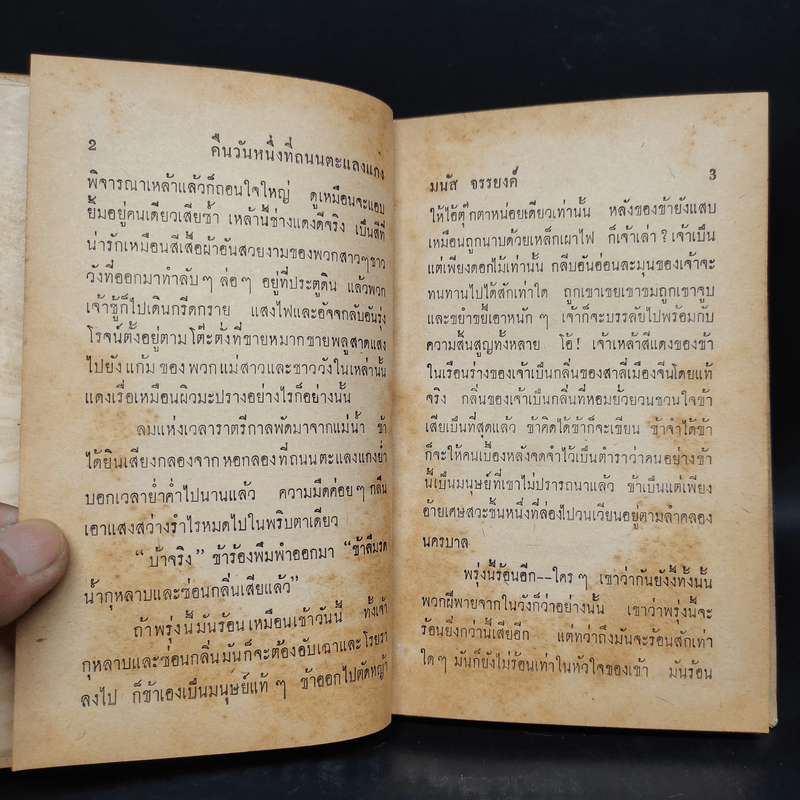 2
คืนวันหนึ่งที่ถนนตะแลงแกง
พิจารณาเหล้าแล้วก็ถอนใจใหญ่ ดูเหมือนจะแอบ
ยิ้มอยู่คนเดียวเสียซ้ำ เหล้านี้ช่างแดงดีจริง เป็นสีที่
น่ารักเหมือนสีเสื้อผ้าอันสวยงามของพวกสาวๆชาว
วังที่ออกมาทำลับๆ ล่อๆ อยู่ที่ประตูดิน แล้วพวก
เจ้าชู้ก็ไปเดินกรีดกราย แสงไฟและอัจจกลับอันรุ่ง
โรจน์ตั้งอยู่ตามโต๊ะตั่งที่ขายหมากขายพลูสาดแสง
ไปยังแก้มของพวกแม่สาวและชาววังในเหล่านั้น
แดงเรื่อเหมือนผิวมะปรางอย่างไรก็อย่างนั้น
ลมแห่งเวลาราตรีกาลพัดมาจากแม่น้ำ ข้า
ได้ยินเสียงกลองจากหอกลองที่ถนนตะแลงแกงย่ำ
บอกเวลาย่ำค่ำไปนานแล้ว ความมืดค่อยๆ กลืน
เอาแสงสว่างรำไรหมดไปในพริบตาเดียว
“บ้าจริง” ข้าร้องพึมพำออกมา “ข้าลืมรด
น้ำกุหลาบและซ่อนกลิ่นเสียแล้ว”
ถ้าพรุ่งนี้มันร้อนเหมือนเช้าวันนี้ ทั้งเจ้า
กุหลาบและซ่อนกลิ่นมันก็จะต้องอับเฉาและโรยรา
ลงไป ก็ข้าเองเป็นมนุษย์แท้ๆ ข้าออกไปตัดหญ้า
มนัส จรรยงค์
3
ให้ไอ้ตุ๊กตาหน่อยเดียวเท่านั้น หลังของข้ายังแสบ
เหมือนถูกนาบด้วยเหล็กเผาไฟ ก็เจ้าเล่า? เจ้าเป็น
แต่เพียงดอกไม้เท่านั้น กลีบอันอ่อนละมุนของเจ้าจะ
ทนทานไปได้สักเท่าใด ถูกเขาเชยเขาชมถูกเขาจูบ
และขยำขยี้เอาหนักๆ เจ้าก็จะบรรลัยไปพร้อมกับ
ความสิ้นสูญทั้งหลาย โอ้! เจ้าเหล้าสีแดงของข้า
ในเรือนร่างของเจ้าเป็นกลิ่นของสาลี่เมืองจีนโดยแท้
จริง กลิ่นของเจ้าเป็นกลิ่นที่หอมยั่วยวนชวนใจข้า
เสียเป็นที่สุดแล้ว ข้าคิดได้ข้าก็จะเขียน ข้าจำได้ข้า
ก็จะให้คนเบื้องหลังจดจำไว้เป็นตำราว่าคนอย่างข้า
นี้เป็นมนุษย์ที่เขาไม่ปรารถนาแล้ว ข้าเป็นแต่เพียง
อ้ายเศษสวะชิ้นหนึ่งที่ล่องไปวนเวียนอยู่ตามลำคลอง
นครบาล
พรุ่งนี้ร้อนอีก--ใครๆ เขาว่ากันยังงี้ทั้งนั้น
พวกผีพายจากในวังก็ว่าอย่างนั้น เขาว่าพรุ่งนี้จะ
ร้อนยิ่งกว่านี้เสียอีก แต่ทว่าถึงมันจะร้อนสักเท่า
ใดๆ มันก็ยังไม่ร้อนเท่าในหัวใจของเข้า มันร้อน